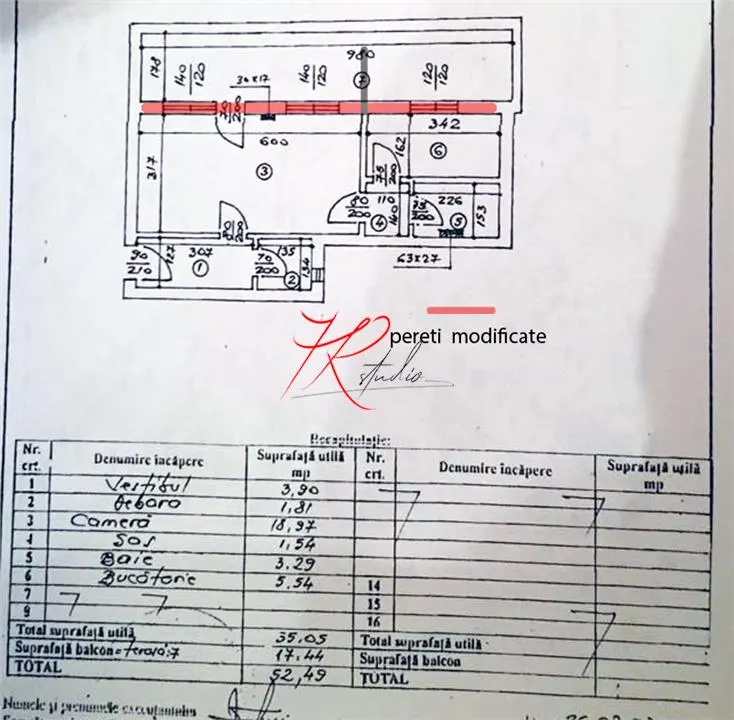 980
178
140
120
140
120
120
120
7
34x17
70
200
342
600
6
162
317
3
75
200
80
200
110
140
226
4
75
200
5
153
80
200
90
210
127
307
1
70
200
135
134
2
63x27
pereti modificate
HR
studio
Recapitulație:
Nr. crt. Denumire încăpere Suprafață utilă mp Nr. crt. Denumire încăpere Suprafață utilă mp
1 Vestibul 3,90
2 Debara 1,81
3 Cameră 18,97
4 Sas 1,54
5 Baie 3,29
6 Bucătărie 5,54 14
7 15
9 16
Total suprafață utilă 35,05 Total suprafață utilă
Suprafață balcon=terasă:7 17,44 Suprafață balcon
TOTAL 52,49 TOTAL
Numele și prenumele executantului